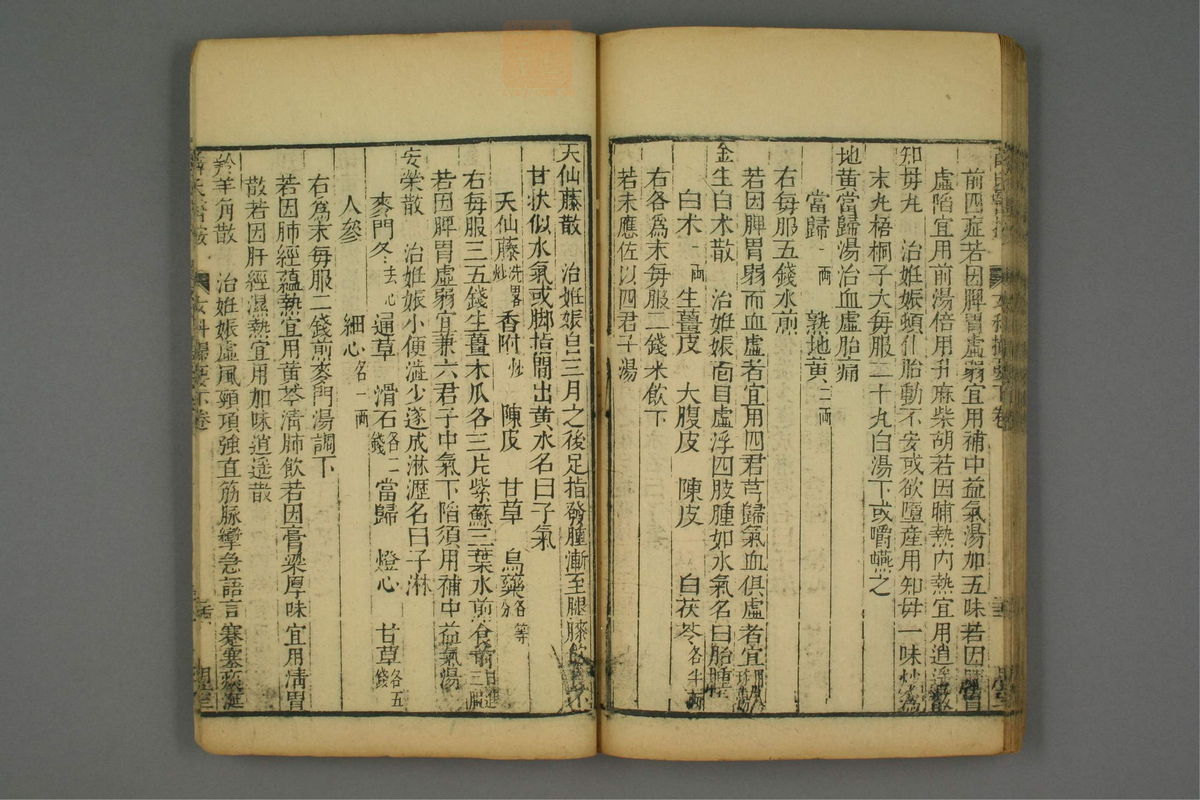 前四症若因脾胃虛弱宜用補中益氣湯加五味若因脾胃
虛陷宜用前湯倍用升麻柴胡若因晡熱內熱宜用逍遙散
知毋丸　治姙娠頓仆胎動不安或欲墮産用知毋一味炒為
末丸梧桐子大每服二十丸白湯下或嚼嚥之
地黄當歸湯治血虛胎痛
當歸一兩　熟地黄二兩
右每服五錢水煎
若因脾胃弱而血虛者宜用四君芎歸氣血俱虛者宜用八珍湯
金生白术散　治姙娠面目虛浮四肢腫如水氣名曰胎腫
白术一兩　生薑皮　大腹皮　陳皮　白茯苓各半兩
右各爲末每服二錢米飲下
若未應佐以四君子湯
天仙藤散　治姙娠自三月之後足指發腫漸至腿膝飲食不
甘狀似水氣或脚指間出黄水名曰子氣
天仙藤洗畧炒　香附炒　陳皮　甘草　烏藥各等分
右每服三五錢生薑木瓜各三片紫蘇三葉水煎食前日進三服
若因脾胃虛弱宜兼六君子中氣下陷須用補中益氣湯
安榮散　治姙娠小便澁少遂成淋瀝名曰子淋
麥門冬去心　通草　滑石各二錢　當歸　燈心　甘草各五錢
人參　細心各一兩
右爲末每服二錢煎麥門湯調下
若因肺經蘊熱宜用黄芩清肺飲若因膏粱厚味宜用清胃
散若因肝經濕熱宜用加味逍遥散
羚羊角散　治姙娠虛風頸項強直筋脉攣急語言蹇塞痰涎
薛氏醫按　女科攝要下卷